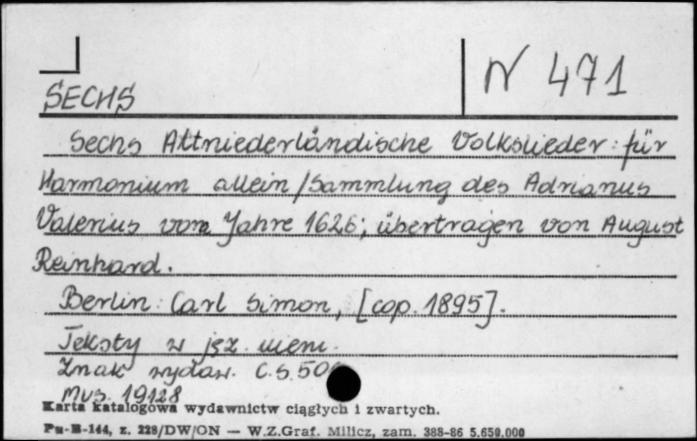 N 471
SECHS
Sechs Altniederländische Volkslieder : für
Harmonium allein / Sammlung des Adrianus
Valerius vom Jahre 1626 ; übertragen von August
Reinhard.
Berlin : Carl Simon, [cop. 1895].
Teksty w jęz. niem.
Znak wydaw. C.S. 50
Mus. 19128
Karta katalogowa wydawnictw ciągłych i zwartych.
Pu-B-144, z. 228/DW/ON — W.Z.Graf. Milicz, zam. 388-86 5.650.000